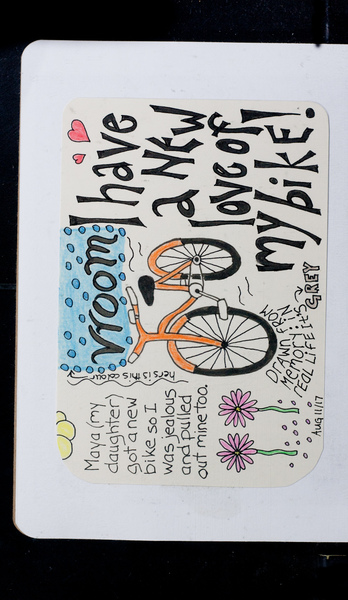 I have
a NEW
love of
my bike!
vroom
hers is this colour
Maya (my
daughter)
got a new
bike so I
was jealous
and pulled
out mine too.
DRAWN FROM
MEMORY: IN
REAL LIFE it's
GREY
Aug 11/17